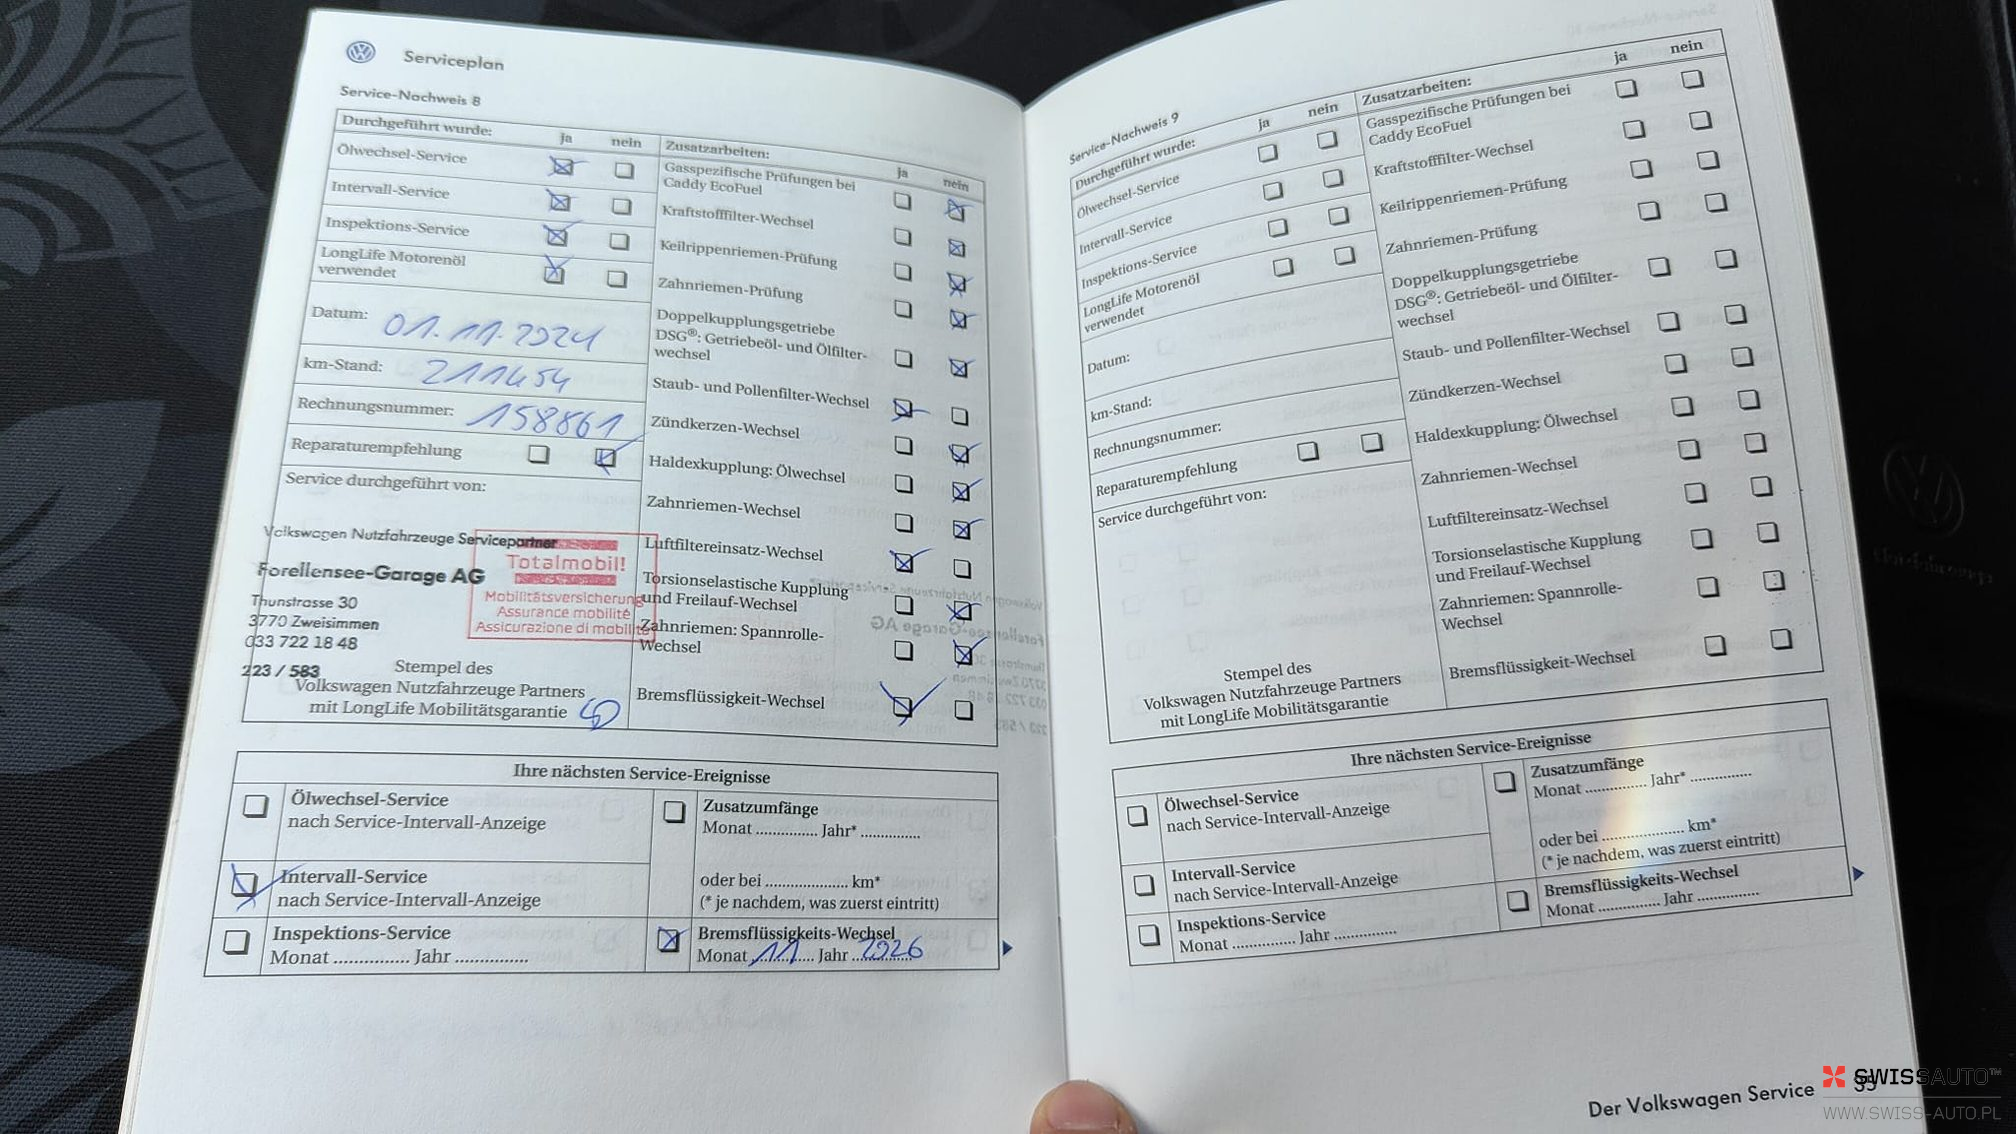 Serviceplan
Service-Nachweis 8
Durchgeführt wurde: ja nein
Ölwechsel-Service
Intervall-Service
Inspektions-Service
LongLife Motorenöl
verwendet
Datum: 01.11.2024
km-Stand: 211454
Rechnungsnummer: 158861
Reparaturempfehlung
Service durchgeführt von:
Volkswagen Nutzfahrzeuge Servicepartner
Forellensee-Garage AG
Thunstrasse 30
3770 Zweisimmen
033 722 18 48
223 / 583
Totalmobil!
Mobilitätsversicherung
Assurance mobilité
Assicurazione di mobilità
Stempel des
Volkswagen Nutzfahrzeuge Partners
mit LongLife Mobilitätsgarantie
Zusatzarbeiten: ja nein
Gasspezifische Prüfungen bei
Caddy EcoFuel
Kraftstofffilter-Wechsel
Keilrippenriemen-Prüfung
Zahnriemen-Prüfung
Doppelkupplungsgetriebe
DSG®: Getriebeöl- und Ölfilter-
wechsel
Staub- und Pollenfilter-Wechsel
Zündkerzen-Wechsel
Haldexkupplung: Ölwechsel
Zahnriemen-Wechsel
Luftfiltereinsatz-Wechsel
Torsionselastische Kupplung
und Freilauf-Wechsel
Zahnriemen: Spannrolle-
Wechsel
Bremsflüssigkeit-Wechsel
Ihre nächsten Service-Ereignisse
Ölwechsel-Service
nach Service-Intervall-Anzeige
Intervall-Service
nach Service-Intervall-Anzeige
Inspektions-Service
Monat ............... Jahr ...............
Zusatzumfänge
Monat ............... Jahr* ...............
oder bei .................... km*
(* je nachdem, was zuerst eintritt)
Bremsflüssigkeits-Wechsel
Monat 11 Jahr 2026
Service-Nachweis 9
Durchgeführt wurde: ja nein
Ölwechsel-Service
Intervall-Service
Inspektions-Service
LongLife Motorenöl
verwendet
Datum:
km-Stand:
Rechnungsnummer:
Reparaturempfehlung
Service durchgeführt von:
Stempel des
Volkswagen Nutzfahrzeuge Partners
mit LongLife Mobilitätsgarantie
Zusatzarbeiten: ja nein
Gasspezifische Prüfungen bei
Caddy EcoFuel
Kraftstofffilter-Wechsel
Keilrippenriemen-Prüfung
Zahnriemen-Prüfung
Doppelkupplungsgetriebe
DSG®: Getriebeöl- und Ölfilter-
wechsel
Staub- und Pollenfilter-Wechsel
Zündkerzen-Wechsel
Haldexkupplung: Ölwechsel
Zahnriemen-Wechsel
Luftfiltereinsatz-Wechsel
Torsionselastische Kupplung
und Freilauf-Wechsel
Zahnriemen: Spannrolle-
Wechsel
Bremsflüssigkeit-Wechsel
Ihre nächsten Service-Ereignisse
Ölwechsel-Service
nach Service-Intervall-Anzeige
Intervall-Service
nach Service-Intervall-Anzeige
Inspektions-Service
Monat ............... Jahr ...............
Zusatzumfänge
Monat ............... Jahr* ...............
oder bei .................... km*
(* je nachdem, was zuerst eintritt)
Bremsflüssigkeits-Wechsel
Monat ............... Jahr ...............
Der Volkswagen Service 35
SWISSAUTO™
WWW.SWISS-AUTO.PL